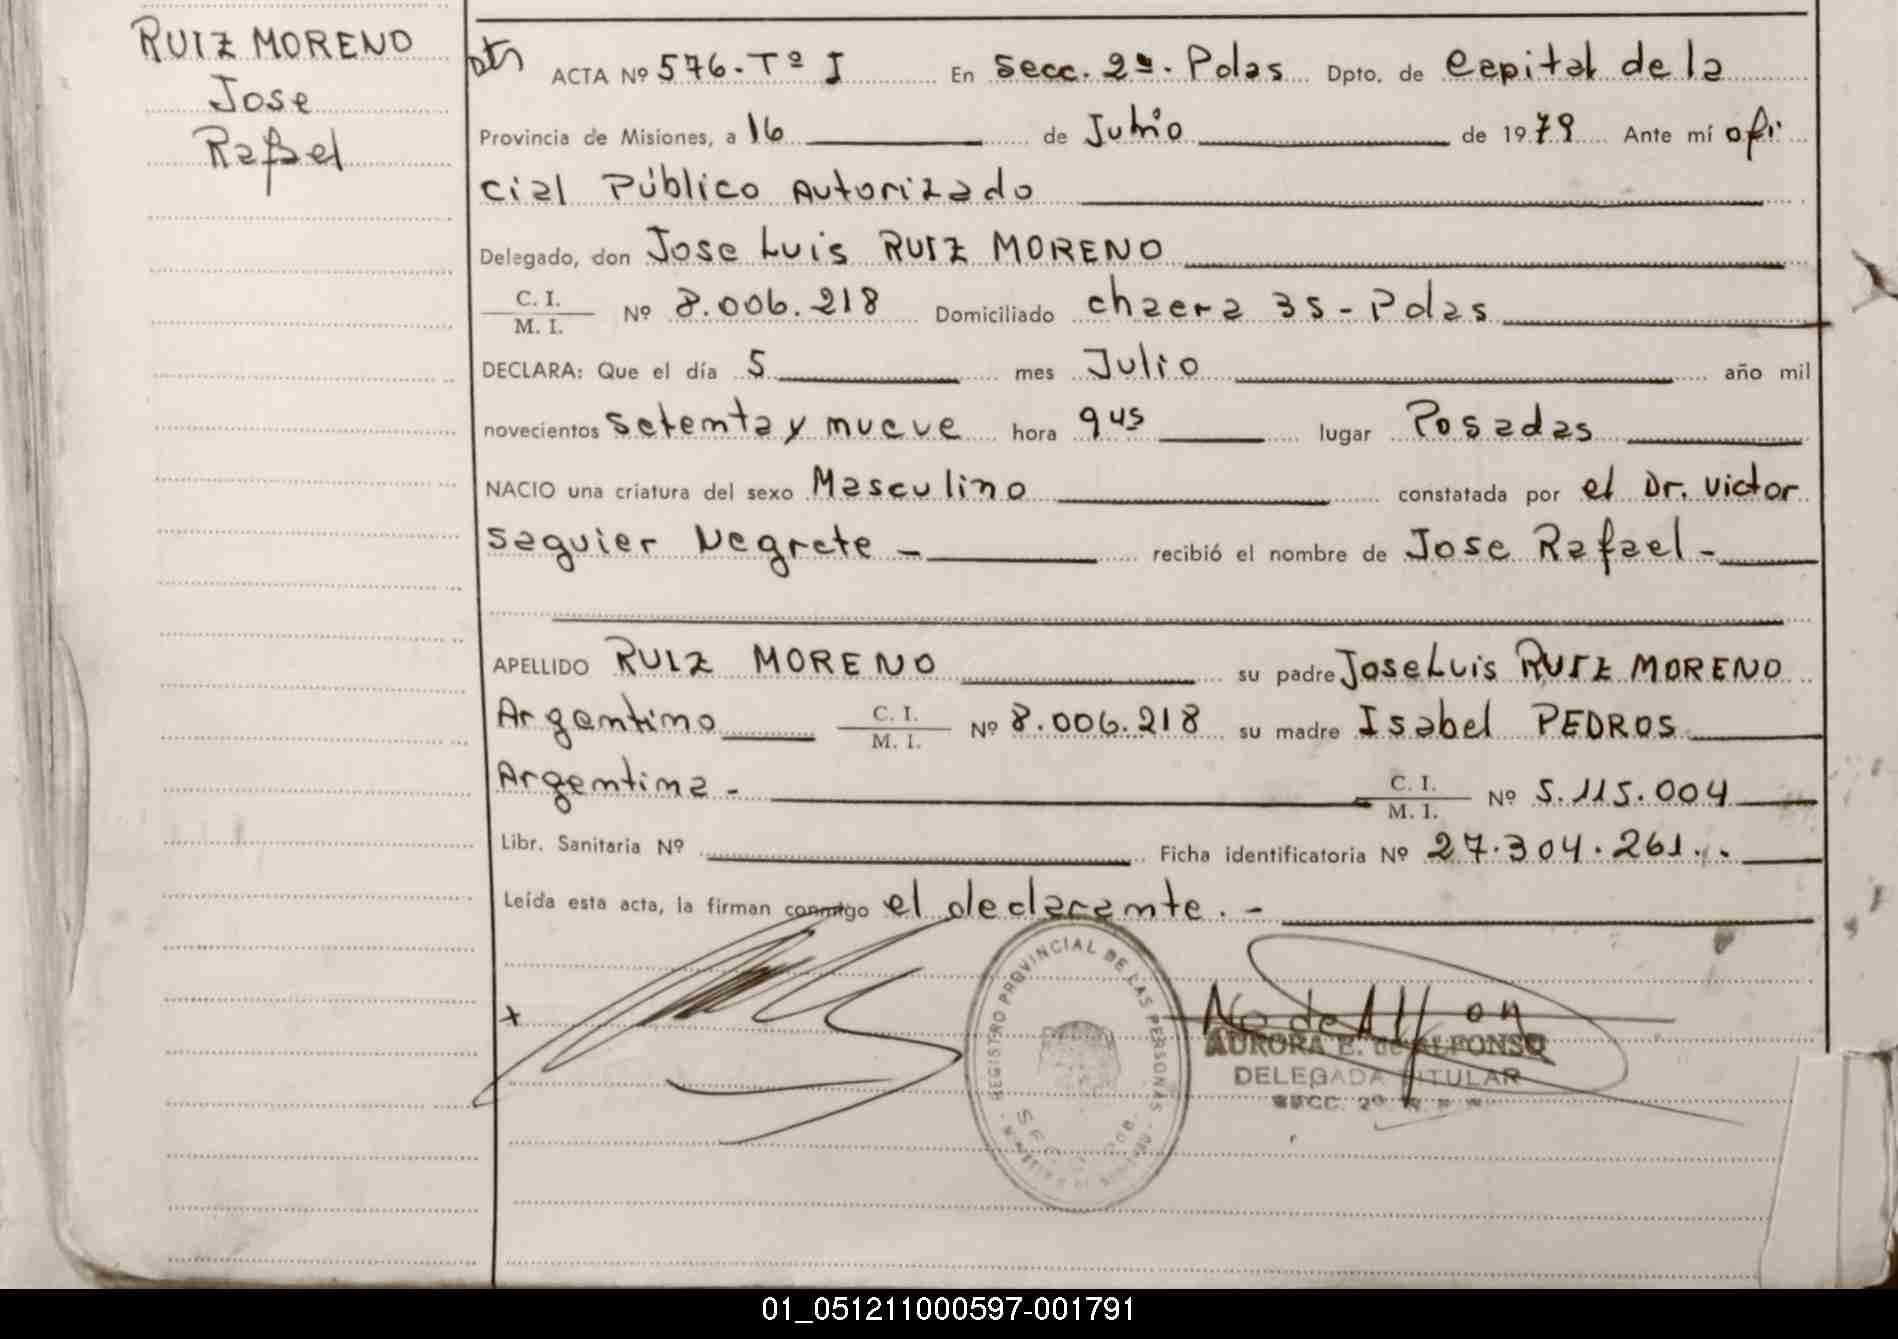 RUIZ MORENO
Jose
Rafael
ACTA Nº 576. Tº I En Secc. 2ª. Pdas Dpto. de Capital de la
Provincia de Misiones, a 16 de Julio de 1979 Ante mí ofi
cial Público Autorizado
Delegado, don Jose Luis RUIZ MORENO
C. I.
M. I. Nº 8.006.218 Domiciliado chacra 35 - Pdas
DECLARA: Que el día 5 mes Julio año mil
novecientos setenta y nueve hora 9 45 lugar Posadas
NACIO una criatura del sexo Masculino constatada por el Dr. Victor
Saguier Negrete - recibió el nombre de Jose Rafael -
APELLIDO RUIZ MORENO su padre Jose Luis RUIZ MORENO
Argentino C. I.
M. I. Nº 8.006.218 su madre Isabel PEDROS
Argentina - C. I.
M. I. Nº 5.115.004
Libr. Sanitaria Nº Ficha identificatoria Nº 27.304.261..
Leída esta acta, la firman conmigo el declarante. -
x
REGISTRO PROVINCIAL DE LAS PERSONAS
AURORA E. de ALFONSO
DELEGADA TITULAR
SECC. 2º
01_051211000597-001791